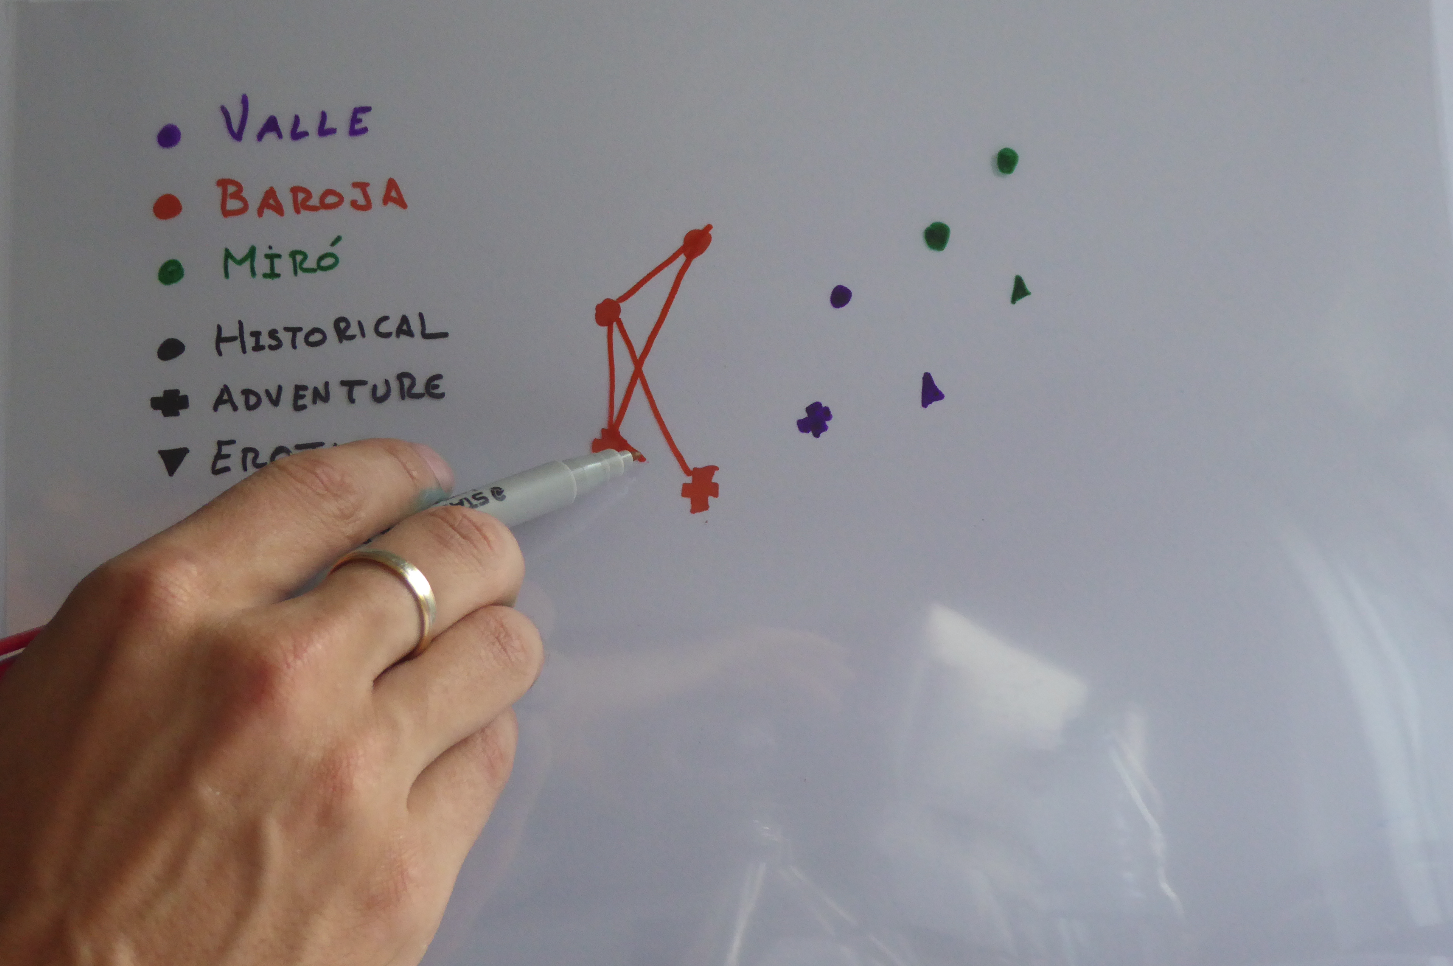 VALLE
BAROJA
MIRÓ
HISTORICAL
ADVENTURE